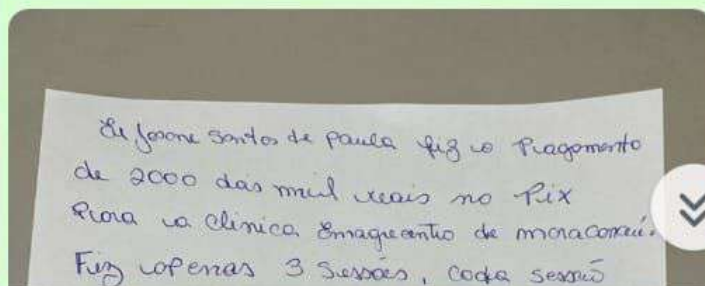 Eu Josone Santos de Paula fiz o Pragomento
de 2000 das mil reais no Pix
Prara a Clinica Emagrecentro de maracanaú.
Fiz apenas 3 Sessões, coda sessão